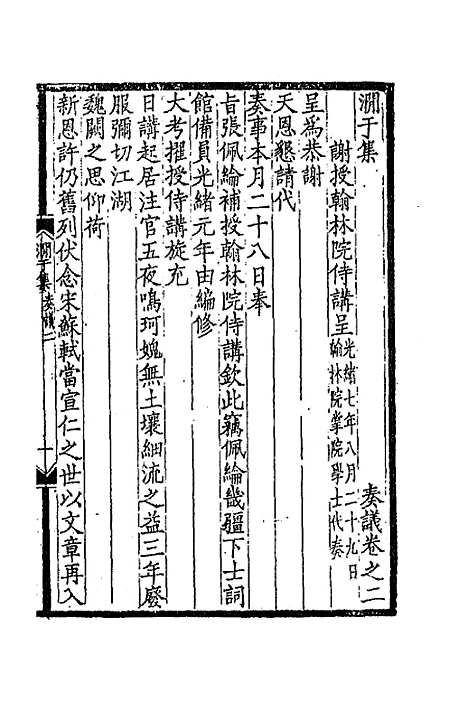 澗于集　奏議卷之二
謝授翰林院侍講呈光緒七年八月二十九日翰林院掌院學士代奏
呈爲恭謝
天恩懇請代
奏事本月二十八日奉
旨張佩綸補授翰林院侍講欽此竊佩綸畿疆下士詞
館備員光緒元年由編修
大考擢授侍講旋充
日講起居注官五夜鳴珂媿無土壤細流之益三年廢
服彌切江湖
魏闕之思仰荷
新恩許仍舊列伏念宋蘇軾當宣仁之世以文章再入
澗于集　奏議二　一